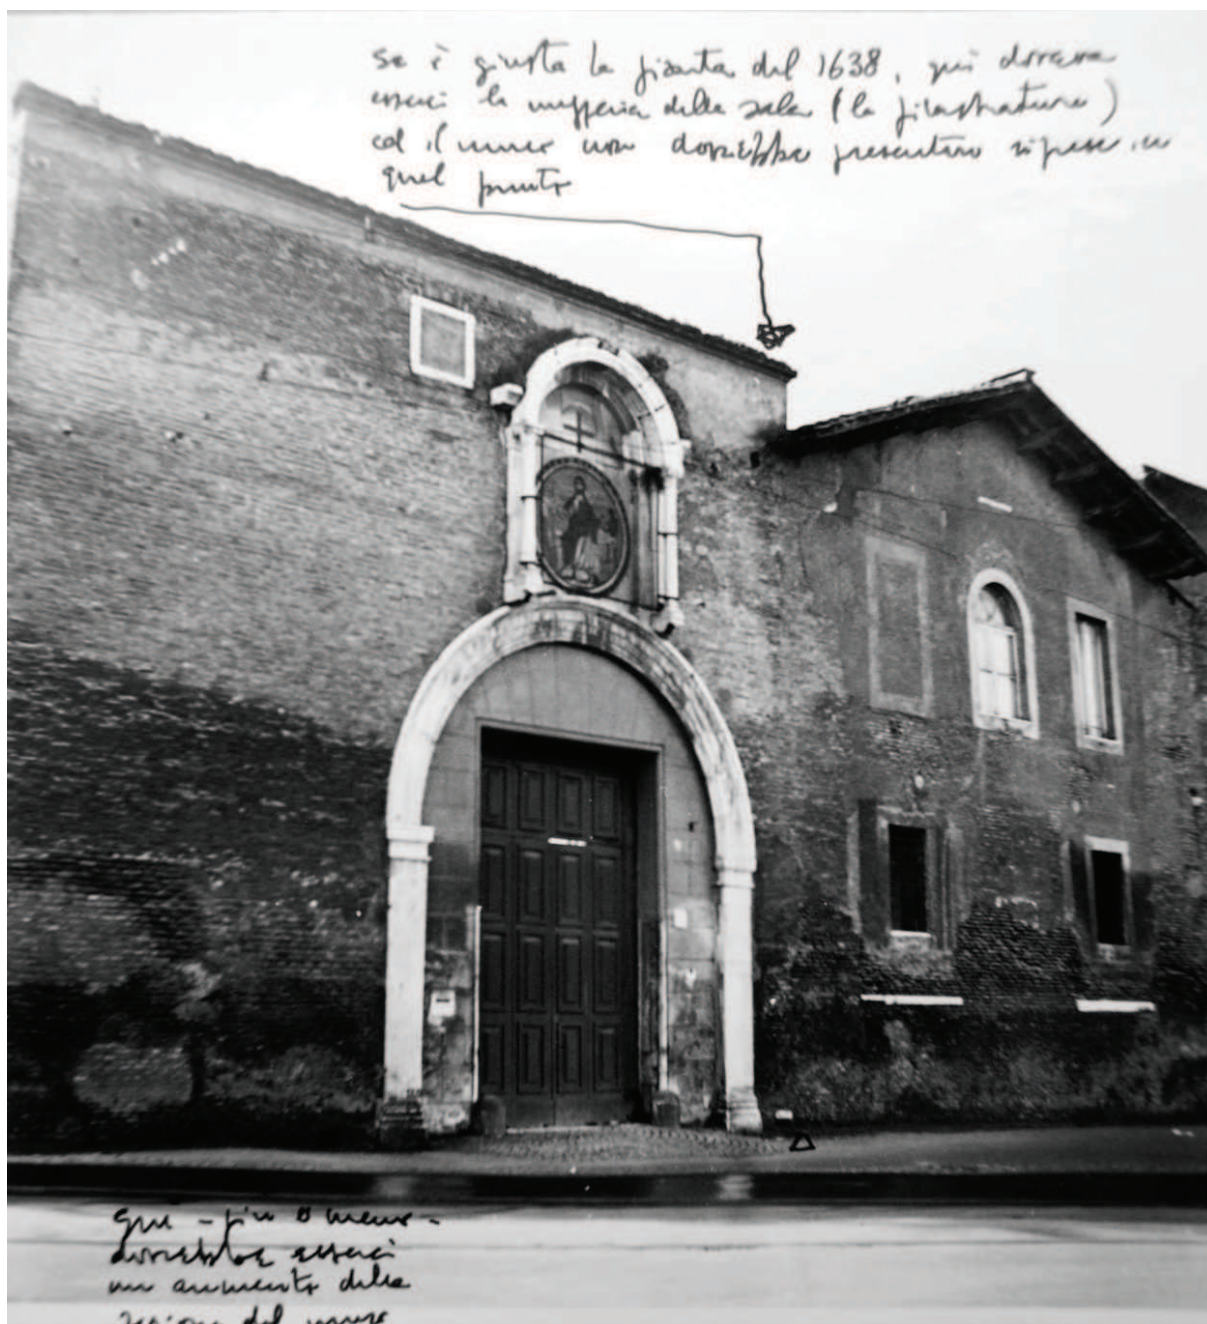 se è giusta la pianta del 1638, qui dovrebbe
esserci la mezzeria della sala (la pilastratura)
ed il muro non dovrebbe presentare riprese in
quel punto
qui - più o meno -
dovrebbe esserci
un aumento della
sezione del muro